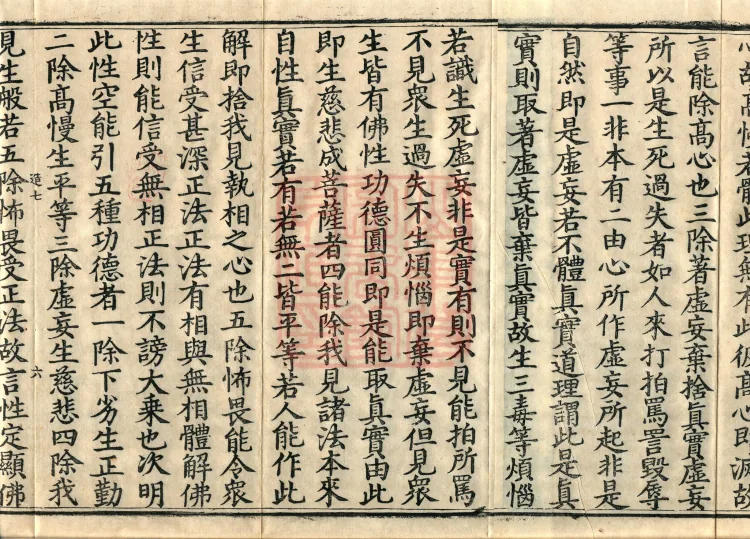 心故高慢若體此理無有此彼高心即滅故
言能除髙心也三除著虚妄棄捨真實虚妄
所以是生死過失者如人來打拍罵詈毀辱
等事一非本有二由心所作虚妄所起非是
自然即是虚妄若不體真實道理謂此是真
實則取著虚妄皆棄真實故生三毒等煩惱
若識生死虚妄非是實有則不見能拍所罵
不見衆生過失不生煩惱即棄虚妄但見衆
生皆有佛性功德圓同即是能取真實由此
即生慈悲成菩薩者四能除我見諸法本來
自性真實若有若無二皆平等若人能作此
解即捨我見執相之心也五除怖畏能令衆
生信受甚深正法正法有相與無相體解佛
性則能信受無相正法則不謗大乗也次明
此性空能引五種功德者一除下劣生正勤
二除髙慢生平等三除虚妄生慈悲四除我
造七
六
見生般若五除怖畏受正法故言性定顯佛